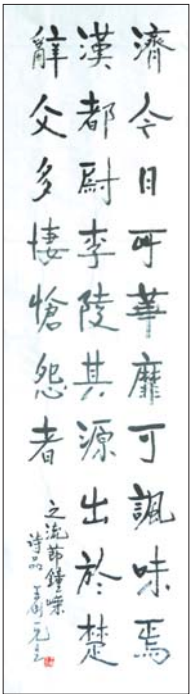 濟今日可華靡可諷味焉
漢都尉李陵其源出於楚
辭父多悽愴怨者
之流節鐘嶸
詩品